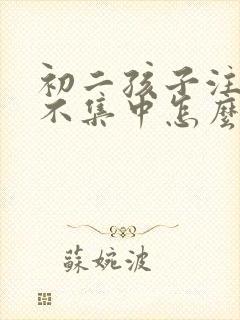 初二孩子注
不集中怎麼
蘇婉波